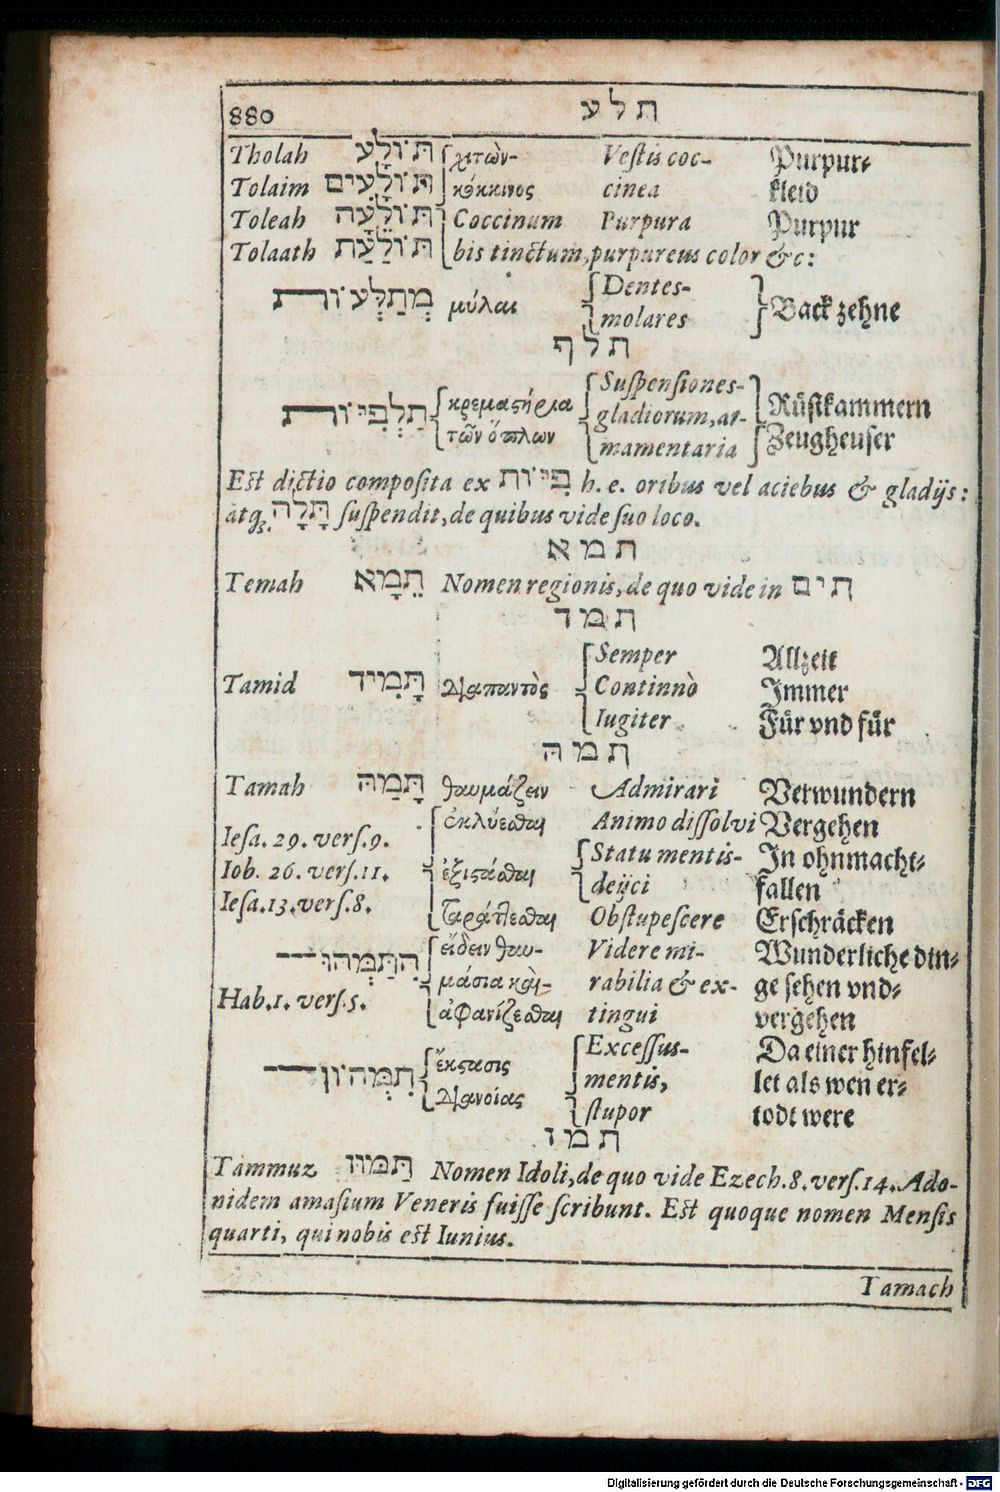 880 תלע
Tholah תּוֹלָע χιτὼν- Vestis coc- Purpur-
Tolaim תּוֹלָעִים κόκκινος cinea kleid
Toleah תּוֹלֵעָה Coccinum Purpura Purpur
Tolaath תּוֹלַעַת bis tinctum, purpureus color &c:
Dentes-
מְתַלְּעוֹת μύλαι molares Back zehne
תלף
Suspensiones-
תַלְפִּיוֹת κρεμαστήρια gladiorum, ar- Rüstkammern
τῶν ὅπλων mamentaria Zeugheuser
Est dictio composita ex פִּיוֹת h.e. oribus vel aciebus & gladijs:
atq; תָּלָה suspendit, de quibus vide suo loco.
תמא
Temah תֵּמָא Nomen regionis, de quo vide in תים
תמד
Semper Allzeit
Tamid תָּמִיד διαπαντὸς Continnò Immer
Iugiter Für vnd für
תמה
Tamah תָּמַהּ θαυμάζειν Admirari Verwundern
ἐκλύεσθαι Animo dissolvi Vergehen
Iesa. 29. vers. 9. Statu mentis- In ohnmacht-
Iob. 26. vers. 11. ἐξιστάσθαι deijci fallen
Iesa. 13. vers. 8. ταράττεσθαι Obstupescere Erschräcken
הִתַּמְּהוּ εἴδειν θαυ- Videre mi- Wunderliche din-
Hab. 1. vers. 5. μάσια καὶ- rabilia & ex- ge sehen vnd-
ἀφανίζεσθαι tingui vergehen
ἔκστασις Excessus- Da einer hinfel-
תִּמְּהוֹן διανοίας mentis, let als wen er-
stupor todt were
תמז
Tammuz תַּמּוּז Nomen Idoli, de quo vide Ezech. 8. vers. 14. Ado-
nidem amasium Veneris fuisse scribunt. Est quoque nomen Mensis
quarti, qui nobis est Iunius.
Tamach
Digitalisierung gefördert durch die Deutsche Forschungsgemeinschaft - DFG